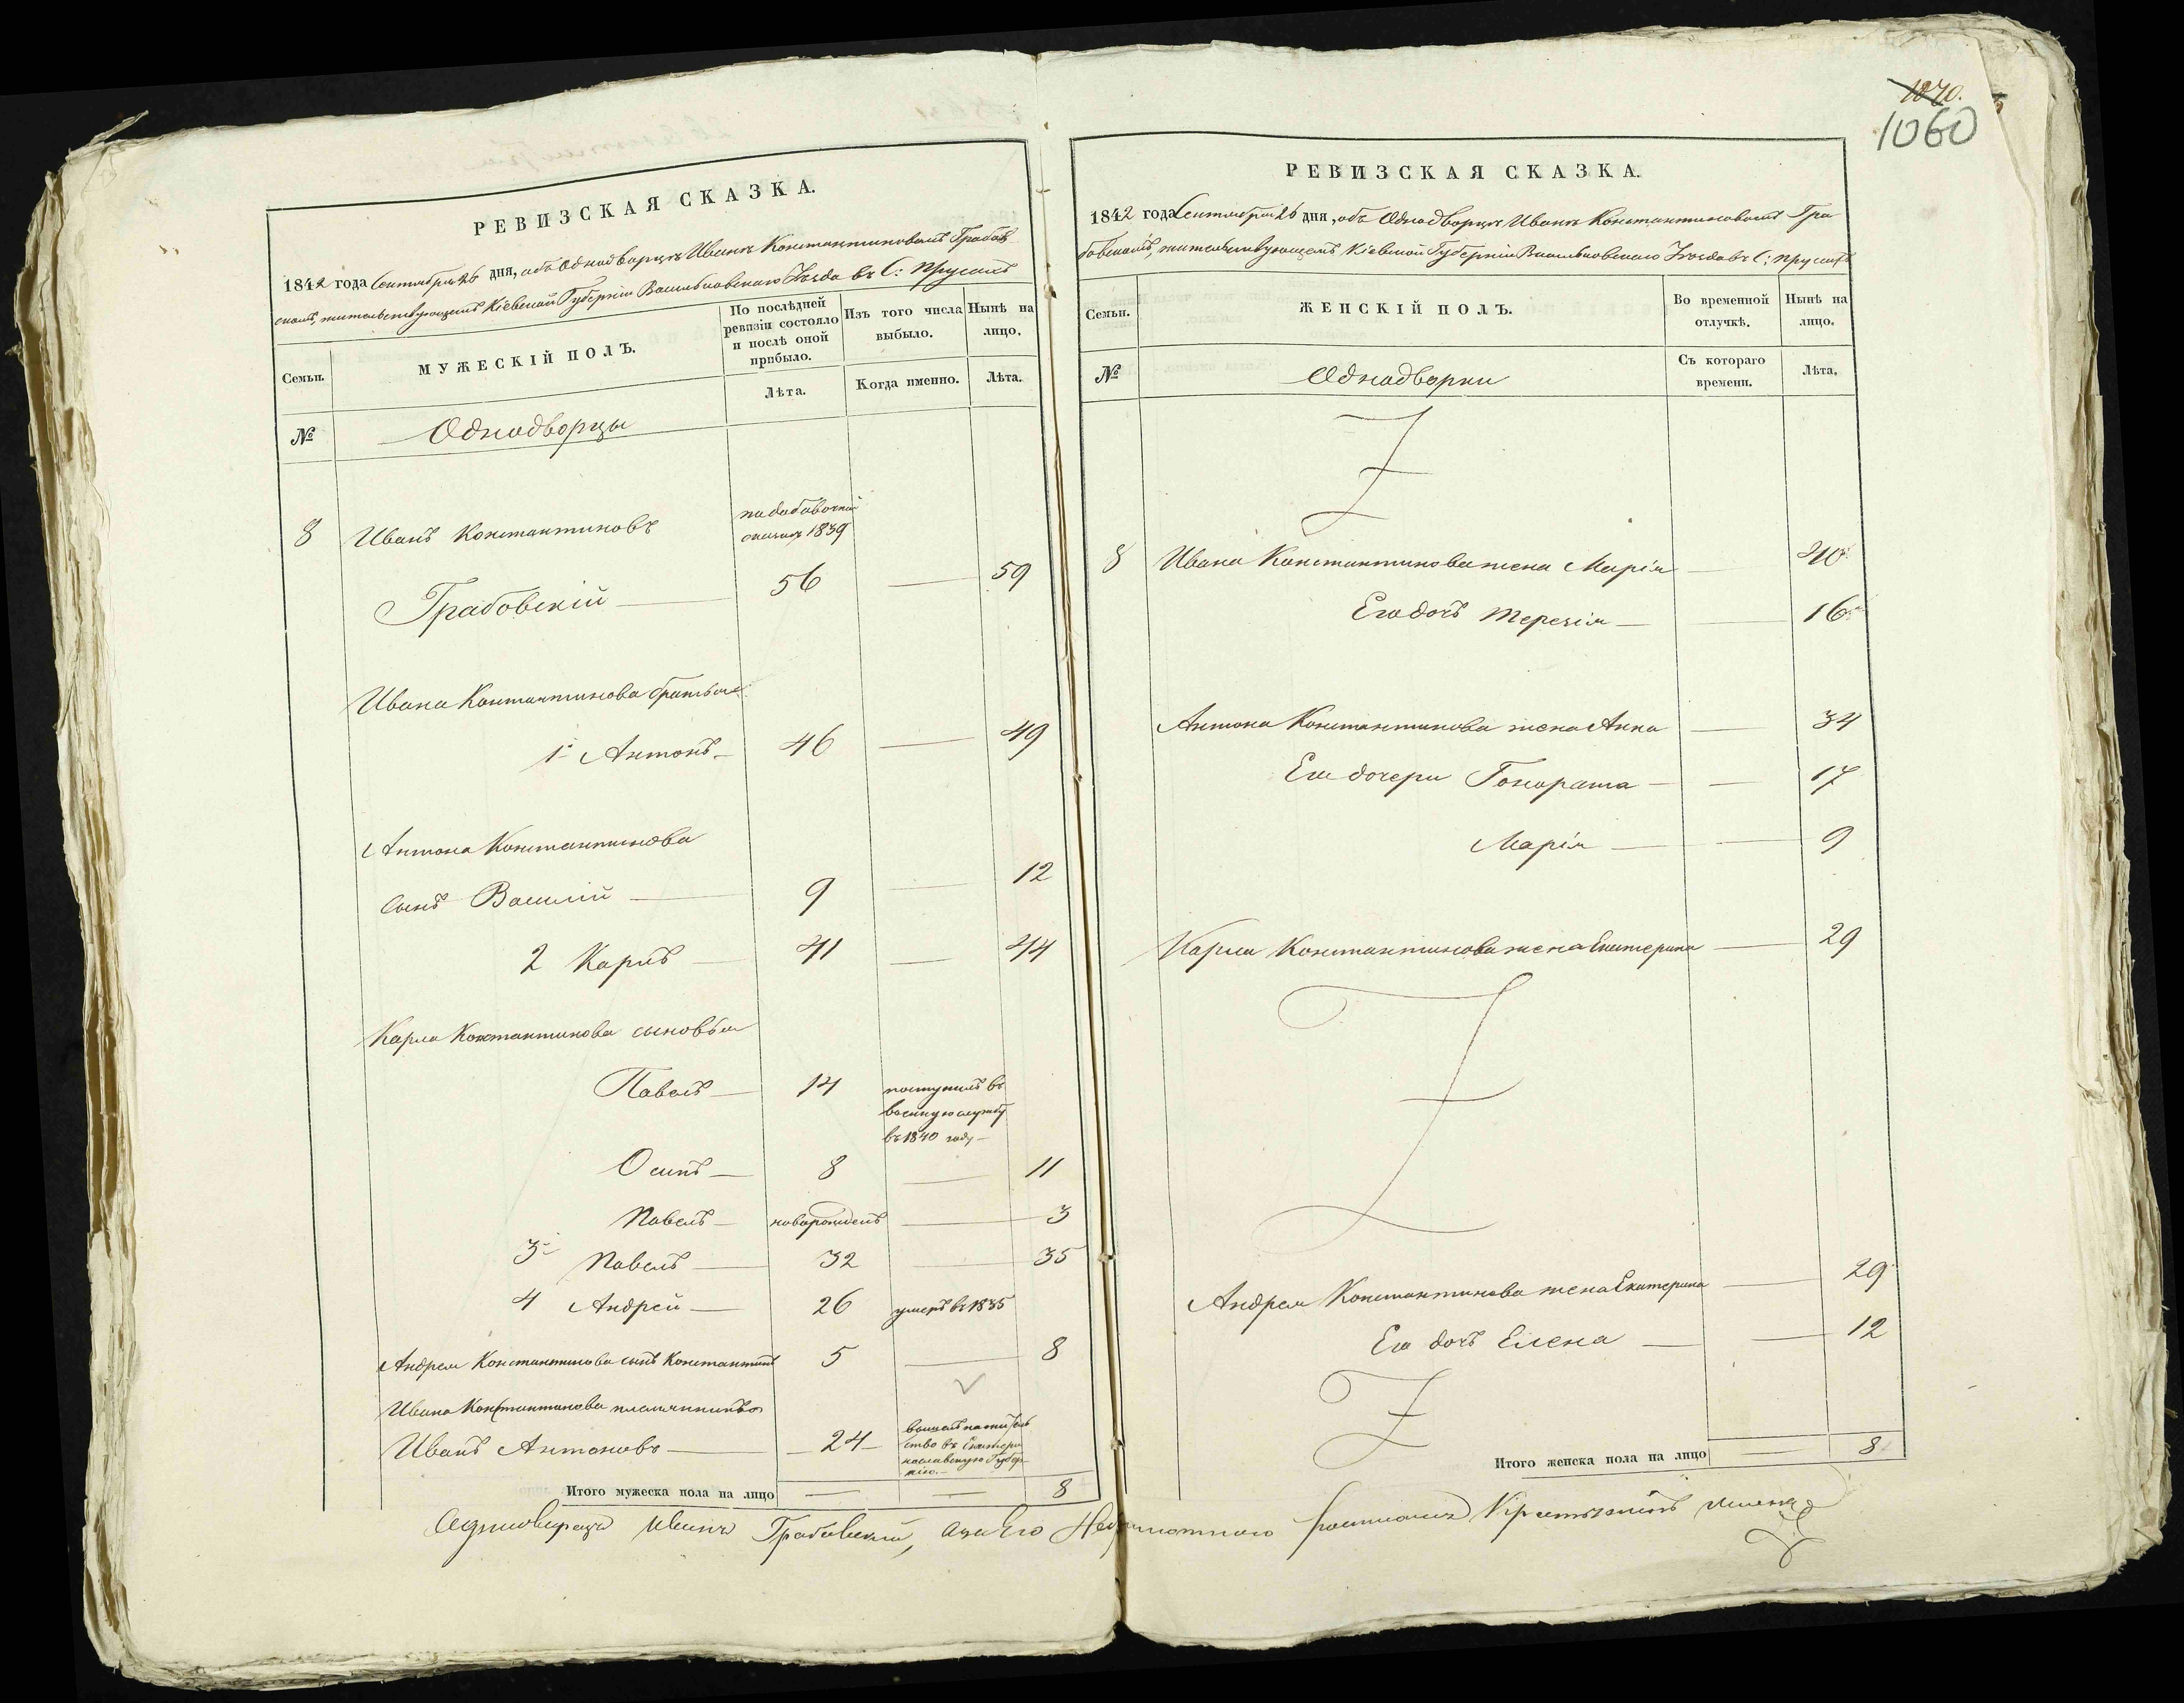 1070.
1060
РЕВИЗСКАЯ СКАЗКА.
1842 года Сентября 26 дня, объ Однодворцѣ Иванѣ Константиновомъ Грабов
скомъ, жительствующемъ Кіевской Губерніи Васильковскаго Уѣзда въ С: Прусахъ
Семьи.
МУЖЕСКІЙ ПОЛЪ.
По послѣдней
ревизіи состояло
и послѣ оной
прибыло.
Изъ того числа
выбыло.
Нынѣ на
лицо.
№
Лѣта.
Когда именно.
Лѣта.
Однодворцы
8 Иванъ Константиновъ
по добавочной
сказкѣ 1839
Грабовскій 56 — 59
Ивана Константинова братья
1й Антонъ 46 — 49
Антона Константинова
сынъ Василій 9 — 12
2 Карлъ 41 — 44
Карла Константинова сыновья
Павелъ 14 поступилъ въ
военную службу
въ 1840 году
Осипъ 8 — 11
Павелъ новорожденъ — 3
3й Павелъ 32 — 35
4 Андрей 26 умеръ въ 1835
Андрея Константинова сынъ Константинъ 5 — 8
Ивана Константинова племянникъ
Иванъ Антоновъ 24 вышелъ на житель
ство въ Екатери
нославскую Губер
нію.
Итого мужеска пола на лицо — — 8
РЕВИЗСКАЯ СКАЗКА.
1842 года Сентября 26 дня, объ Однодворцѣ Иванѣ Константиновомъ Гра
бовскомъ, жительствующемъ Кіевской Губерніи Васильковскаго Уѣзда въ С: Прусахъ
Семьи.
ЖЕНСКІЙ ПОЛЪ.
Во временной
отлучкѣ.
Нынѣ на
лицо.
№
Однодворки
Съ котораго
времени.
Лѣта.
8 Ивана Константинова жена Марія — 40
Его дочь Терезія — 16
Антона Константинова жена Анна — 34
Его дочери Гонората — 17
Марія — 9
Карла Константинова жена Екатерина — 29
Андрея Константинова жена Екатерина — 29
Его дочь Елена — 12
Итого женска пола на лицо — 8
Однодворецъ Иванъ Грабовскій, а за Его Неграмотнаго